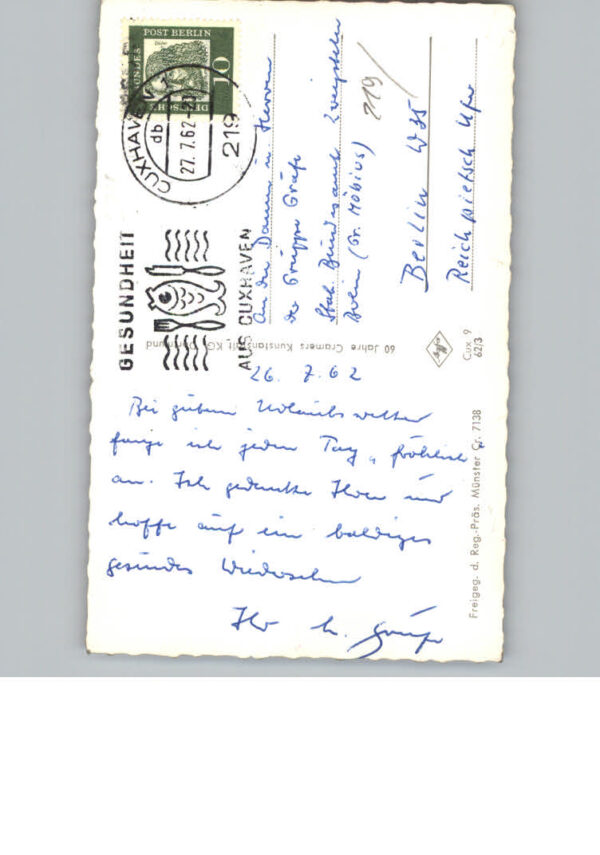 DEUTSCHE BUNDESPOST BERLIN
Dürer
10
CUXHAVEN
db
27.7.62
219
GESUNDHEIT
AUS CUXHAVEN
An die Damen u. Herren
der Gruppe Gräfe
Stat. Bundesamt Zweigstelle
Berlin (Gr. Möbius)
219
Berlin W 35
Reichpietsch Ufer
60 Jahre Cramers Kunstanstalt KG, Dortmund
Cux 9
62/3
Freigeg. d. Reg.-Präs. Münster Cr. 7138
26. 7. 62
Bei gutem Urlaubswetter
fange ich jeden Tag „fröhlich"
an. Ich gedenke Ihrer und
hoffe auf ein baldiges
gesundes Wiedersehen
Ihr